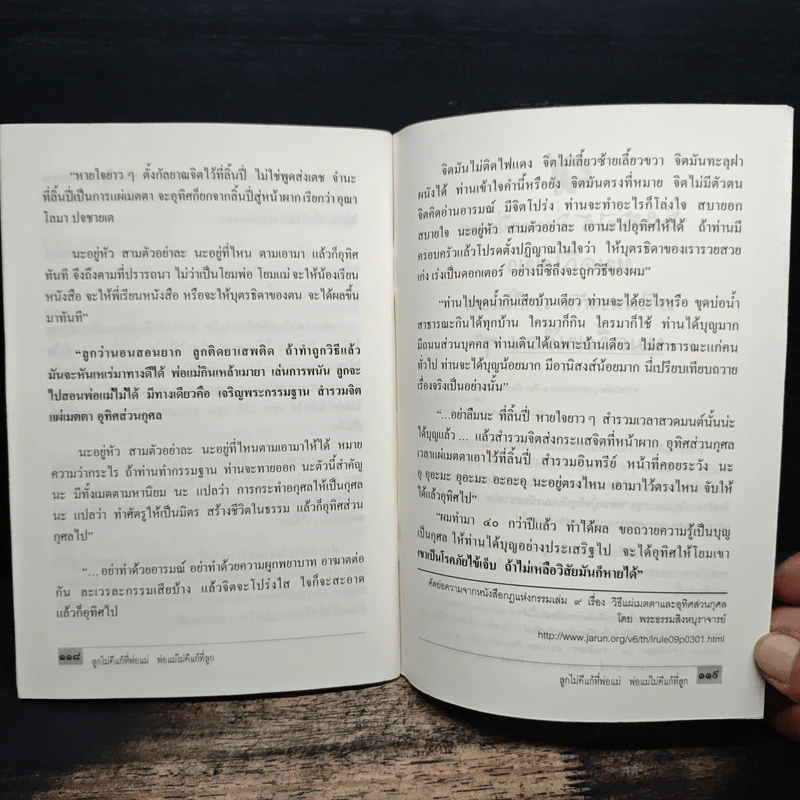 "หายใจยาว ๆ ตั้งกัลยาณจิตไว้ที่ลิ้นปี่ ไม่ใช่พูดส่งเดช จำนะ
ที่ลิ้นปี่เป็นการแผ่เมตตา จะอุทิศก็ยกจากลิ้นปี่สู่หน้าผาก เรียกว่า อุณา
โลมา ปจชายเต
นะอยู่หัว สามตัวอย่าละ นะอยู่ที่ไหน ตามเอามา แล้วก็อุทิศ
ทันที จึงถึงตามที่ปรารถนา ไม่ว่าเป็นโยมพ่อ โยมแม่ จะให้น้องเรียน
หนังสือ จะให้พี่เรียนหนังสือ หรือจะให้บุตรธิดาของตน จะได้ผลขึ้น
มาทันที"
"ลูกว่านอนสอนยาก ลูกติดยาเสพติด ถ้าทำถูกวิธีแล้ว
มันจะหันเหเร่มาทางดีได้ พ่อแม่กินเหล้าเมายา เล่นการพนัน ลูกจะ
ไปสอนพ่อแม่ไม่ได้ มีทางเดียวคือ เจริญพระกรรมฐาน สำรวมจิต
แผ่เมตตา อุทิศส่วนกุศล
นะอยู่หัว สามตัวอย่าละ นะอยู่ที่ไหนตามเอามาให้ได้ หมาย
ความว่ากระไร ถ้าท่านทำกรรมฐาน ท่านจะทายออก นะตัวนี้สำคัญ
นะ มีทั้งเมตตามหานิยม นะ แปลว่า การกระทำอกุศลให้เป็นกุศล
นะ แปลว่า ทำศัตรูให้เป็นมิตร สร้างชีวิตในธรรม แล้วก็อุทิศส่วน
กุศลไป"
"... อย่าทำด้วยอารมณ์ อย่าทำด้วยความผูกพยาบาท อาฆาตต่อ
กัน ละเวรละกรรมเสียบ้าง แล้วจิตจะโปร่งใส ใจก็จะสะอาด
แล้วก็อุทิศไป
๑๑๘ ลูกไม่ดีแก้ที่พ่อแม่ พ่อแม่ไม่ดีแก้ที่ลูก
จิตมันไม่ติดไฟแดง จิตไม่เลี้ยวซ้ายเลี้ยวขวา จิตมันทะลุฝา
ผนังได้ ท่านเข้าใจคำนี้หรือยัง จิตมันตรงที่หมาย จิตไม่มีตัวตน
จิตคิดอ่านอารมณ์ มีจิตโปร่ง ท่านจะทำอะไรก็โล่งใจ สบายอก
สบายใจ นะอยู่หัว สามตัวอย่าละ เอานะไปอุทิศให้ได้ ถ้าท่านมี
ครอบครัวแล้วโปรดตั้งปฏิญาณในใจว่า ให้บุตรธิดาของเรารวยสวย
เก่ง เร่งเป็นดอกเตอร์ อย่างนี้ซิถึงจะถูกวิธีของผม"
"ท่านไปขุดน้ำกินเสียบ้านเดียว ท่านจะได้อะไรหรือ ขุดบ่อน้ำ
สาธารณะกินได้ทุกบ้าน ใครมาก็กิน ใครมาก็ใช้ ท่านได้บุญมาก
มีถนนส่วนบุคคล ท่านเดินได้เฉพาะบ้านเดียว ไม่สาธารณะแก่คน
ทั่วไป ท่านจะได้บุญน้อยมาก มีอานิสงส์น้อยมาก นี่เปรียบเทียบถวาย
เรื่องจริงเป็นอย่างนั้น"
"...อย่าลืมนะ ที่ลิ้นปี่ หายใจยาว ๆ สำรวมเวลาสวดมนต์นั้นน่ะ
ได้บุญแล้ว ... แล้วสำรวมจิตส่งกระแสจิตที่หน้าผาก อุทิศส่วนกุศล
เวลาแผ่เมตตาเอาไว้ที่ลิ้นปี่ สำรวมอินทรีย์ หน้าที่คอยระวัง นะ
อุ อุอะมะ อุอะมะ อะอะอุ นะอยู่ตรงไหน เอามาไว้ตรงไหน จับให้
ได้แล้วอุทิศไป"
"ผมทำมา ๔๐ กว่าปีแล้ว ทำได้ผล ขอถวายความรู้เป็นบุญ
เป็นกุศล ให้ท่านได้บุญอย่างประเสริฐไป จะได้อุทิศให้โยมเขา
เขาเป็นโรคภัยไข้เจ็บ ถ้าไม่เหลือวิสัยมันก็หายได้"
คัดย่อความจากหนังสือกฎแห่งกรรมเล่ม ๙ เรื่อง วิธีแผ่เมตตาและอุทิศส่วนกุศล
โดย พระธรรมสิงหบุราจารย์
http://www.jarun.org/v6/th/lrule09p0301.html
ลูกไม่ดีแก้ที่พ่อแม่ พ่อแม่ไม่ดีแก้ที่ลูก ๑๑๙